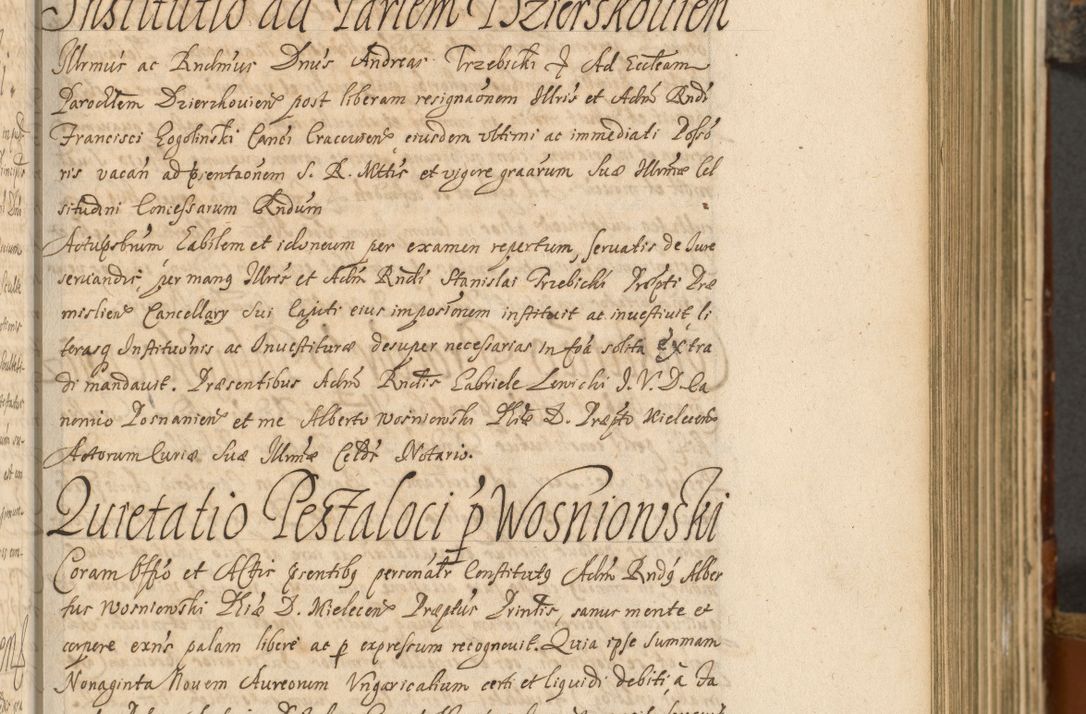 Institutio ad Par̄lem Dzierskovien̄
Illrmūs ac Rndmūs Dnūs Andreas Trzebicki J Ad Eccl̄eam
Parochl̄em Dzierzkovien̄ post liberam resignaōnem Illrīs et Adm̄ Rndī
Francisci Gogolinski Canci Cracovien̄ eiusdem vltimi ac immediati Posō
ris vacan̄ ad pr̄sentaōnem S. R. Mttīs et vigore graārum Suæ Illrmæ Cel
situdini Concessarum Rndum
Actu pr̄sbr̄um habilem et idoneum per examen repertum, servatis de Iure
servandis, per manq̄ Illrīs et Adm̄ Rndī Stanislai Trzebicki Præpti Præ
mislien̄ Cancellarÿ Sui Capiti eius imposiōnem instituit ac investivit, li
terasq̄ Instituōnis ac Investituræ desuper necessarias in foā solita extra
di mandavit. Præsentibus Adm̄ Rndīs Gabriele Lewicki I. V. D. Ca
nonico Posnanien̄ et me Alberto Wosniowski Phiæ D. Præpto Mielecen̄
Actorum Curiæ Suæ Illrmæ Celdīs Notario.
Quietatio Pestaloci p̄ Wosniowski
Coram Offō et Actis pr̄sentibq̄ personālr Constitutq̄ Adm̄ Rndq̄ Alber
tus Wosniowski Phiæ D. Mielecen̄ Præptūs Printīs, sanus mente et
corpore exn̄s palam libere ac p̄ expressum recognovit. Quia ipse summam
Nonaginta Novem Aureorum Vngaricalium certi et liquidi debiti, à Ja